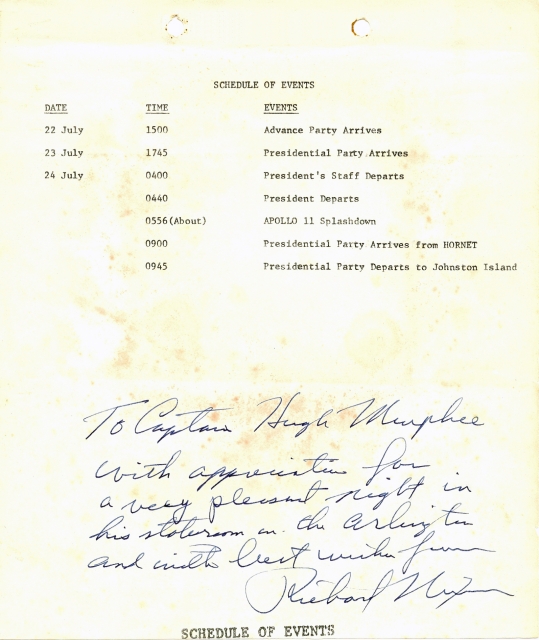 SCHEDULE OF EVENTS
DATE TIME EVENTS
22 July 1500 Advance Party Arrives
23 July 1745 Presidential Party Arrives
24 July 0400 President's Staff Departs
0440 President Departs
0556(About) APOLLO 11 Splashdown
0900 Presidential Party Arrives from HORNET
0945 Presidential Party Departs to Johnston Island
To Captain Hugh Murphree
with appreciation for
a very pleasant night in
his stateroom on the Arlington
and with best wishes from
Richard Nixon
SCHEDULE OF EVENTS